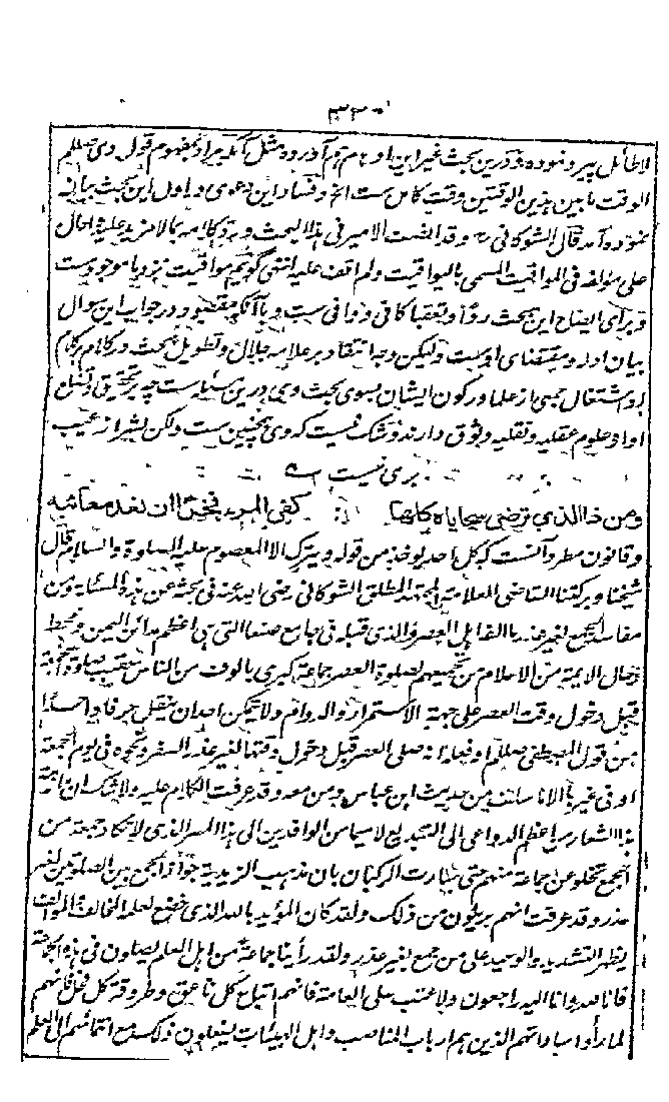 ۳۳۰
لاطائل پیرو نموده و درین بحث غیر این اوہام ہم آورده مثل آنکہ مراد بمفہوم قول وی صلعم
الوقت ما بین ہذین الوقتین وقت کامل ست الخ و فساد این دعوی در اول این بحث بیان
نموده آمد قال الشوکانی رح وقد الفت الامیر فی ہذا البحث ورد کلامہ بما لا مزید علیہ احال
علی مؤلفہ فی المواقیت المسمی بالیواقیت ولم اقف علیہ انتہی گویم مواقیت نزد ما موجود ست
و برای ایضاح این بحث ردا و تعقبا کافی و وافی ست و با آنکہ مقصود در جواب این سوال
بیان ادلہ و مقتضای اوست ولیکن وجہ انتقاد بر علامہ جلال و تطویل بحث در کلام
اشتغال جمعی از علما و رکون ایشان بسوی بحث وی درین مسئلہ ست چہ بر تحقیق و تضلع
او در علوم عقلیہ و نقلیہ وثوق دارند و شک نیست کہ وی ہمچنین ست ولکن بشر از عیب
بری نیست ۵
ومن ذا الذی ترضی سجایاہ کلہا کفی المرء فخرا ان تعد معائبہ
و قانون مطرد آنست کہ کل احد یوخذ من قولہ ویترک الا المعصوم علیہ الصلوة والسلام قال
شیخنا وبرکتنا القاضی العلامة المجتہد المطلق الشوکانی رضی اللہ عنہ فی بحثہ عن ہذہ المسئلة ومن
مفاسد الجمع لغیر عذر ما الفاہ اہل العصر والذی قبلہ فی جامع صنعا التی ہی اعظم مدائن الیمن ومحط
رحال الایمة من الاعلام من تجمیعہم لصلوة العصر جماعة کبری بالوف من الناس عقیب صلوة الجمعة
قبل دخول وقت العصر علی جہة الاستمرار والدوام ولا یمکن احد ان ینقل حرفا واحدا
من قول المصطفی صلعم او فعلہ انہ صلی العصر قبل دخول وقتہا لغیر عذر السفر ونحوہ فی یوم الجمعة
او فی غیرہا الا ما سلف من حدیث ابن عباس ومن معہ وقد عرفت الکلام علیہ ولا شک ان
ہذا الشعار من اعظم الدواعی الی التبدیع لا سیما من الوافدین الی ہذا المصر الذی لا تکاد جمعة من
الجمع تخلو عن جماعة منہم حتی سارت الرکبان بان مذہب الزیدیة جواز الجمع بین الصلوتین لغیر
عذر وقد عرفت انہم بریئون من ذلک ولقد کان المؤید باللہ الذی خضع لعلمہ المخالف والموالف
یظہر التشدید والوعید علی من جمع لغیر عذر ولقد رأینا جماعة من اہل العلم یصلون فی ہذہ الجماعة
فانا للہ وانا الیہ راجعون ولا عتب علی العامة فانہم اتباع کل ناعق وطروقة کل فحل فانہم
لما رأوا ساداتہم الذین ہم ارباب المناصب واہل الہیئات یفعلون ذلک مع انتمائہم الی العلم